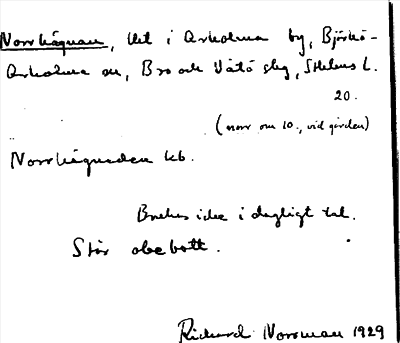 Norrhägnan, lht i Arholma by, Björkö-
Arholma sn, Bro och Vätö slg, Sthlms l.
20.
(norr om 10., vid gården)
Norrhägnaden kb.
Brukes icke i dagligt tal.
Står obebott.
Rickard Norsman 1929